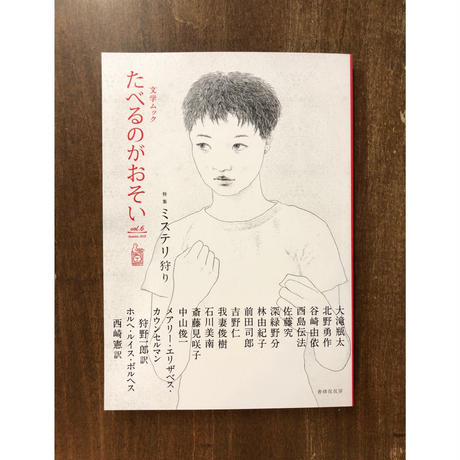 文学ムック
たべるのがおそい
vol.6
特集
ミステリ狩り
大滝瓶太
北野勇作
谷崎由依
西島伝法
佐藤究
深緑野分
林由紀子
前田司郎
吉野仁
我妻俊樹
石川美南
斎藤見咲子
中山俊一
メアリー・エリザベス・
カウンセルマン
狩野一郎訳
ホルヘ・ルイス・ボルヘス
西崎憲訳
書肆侃侃房